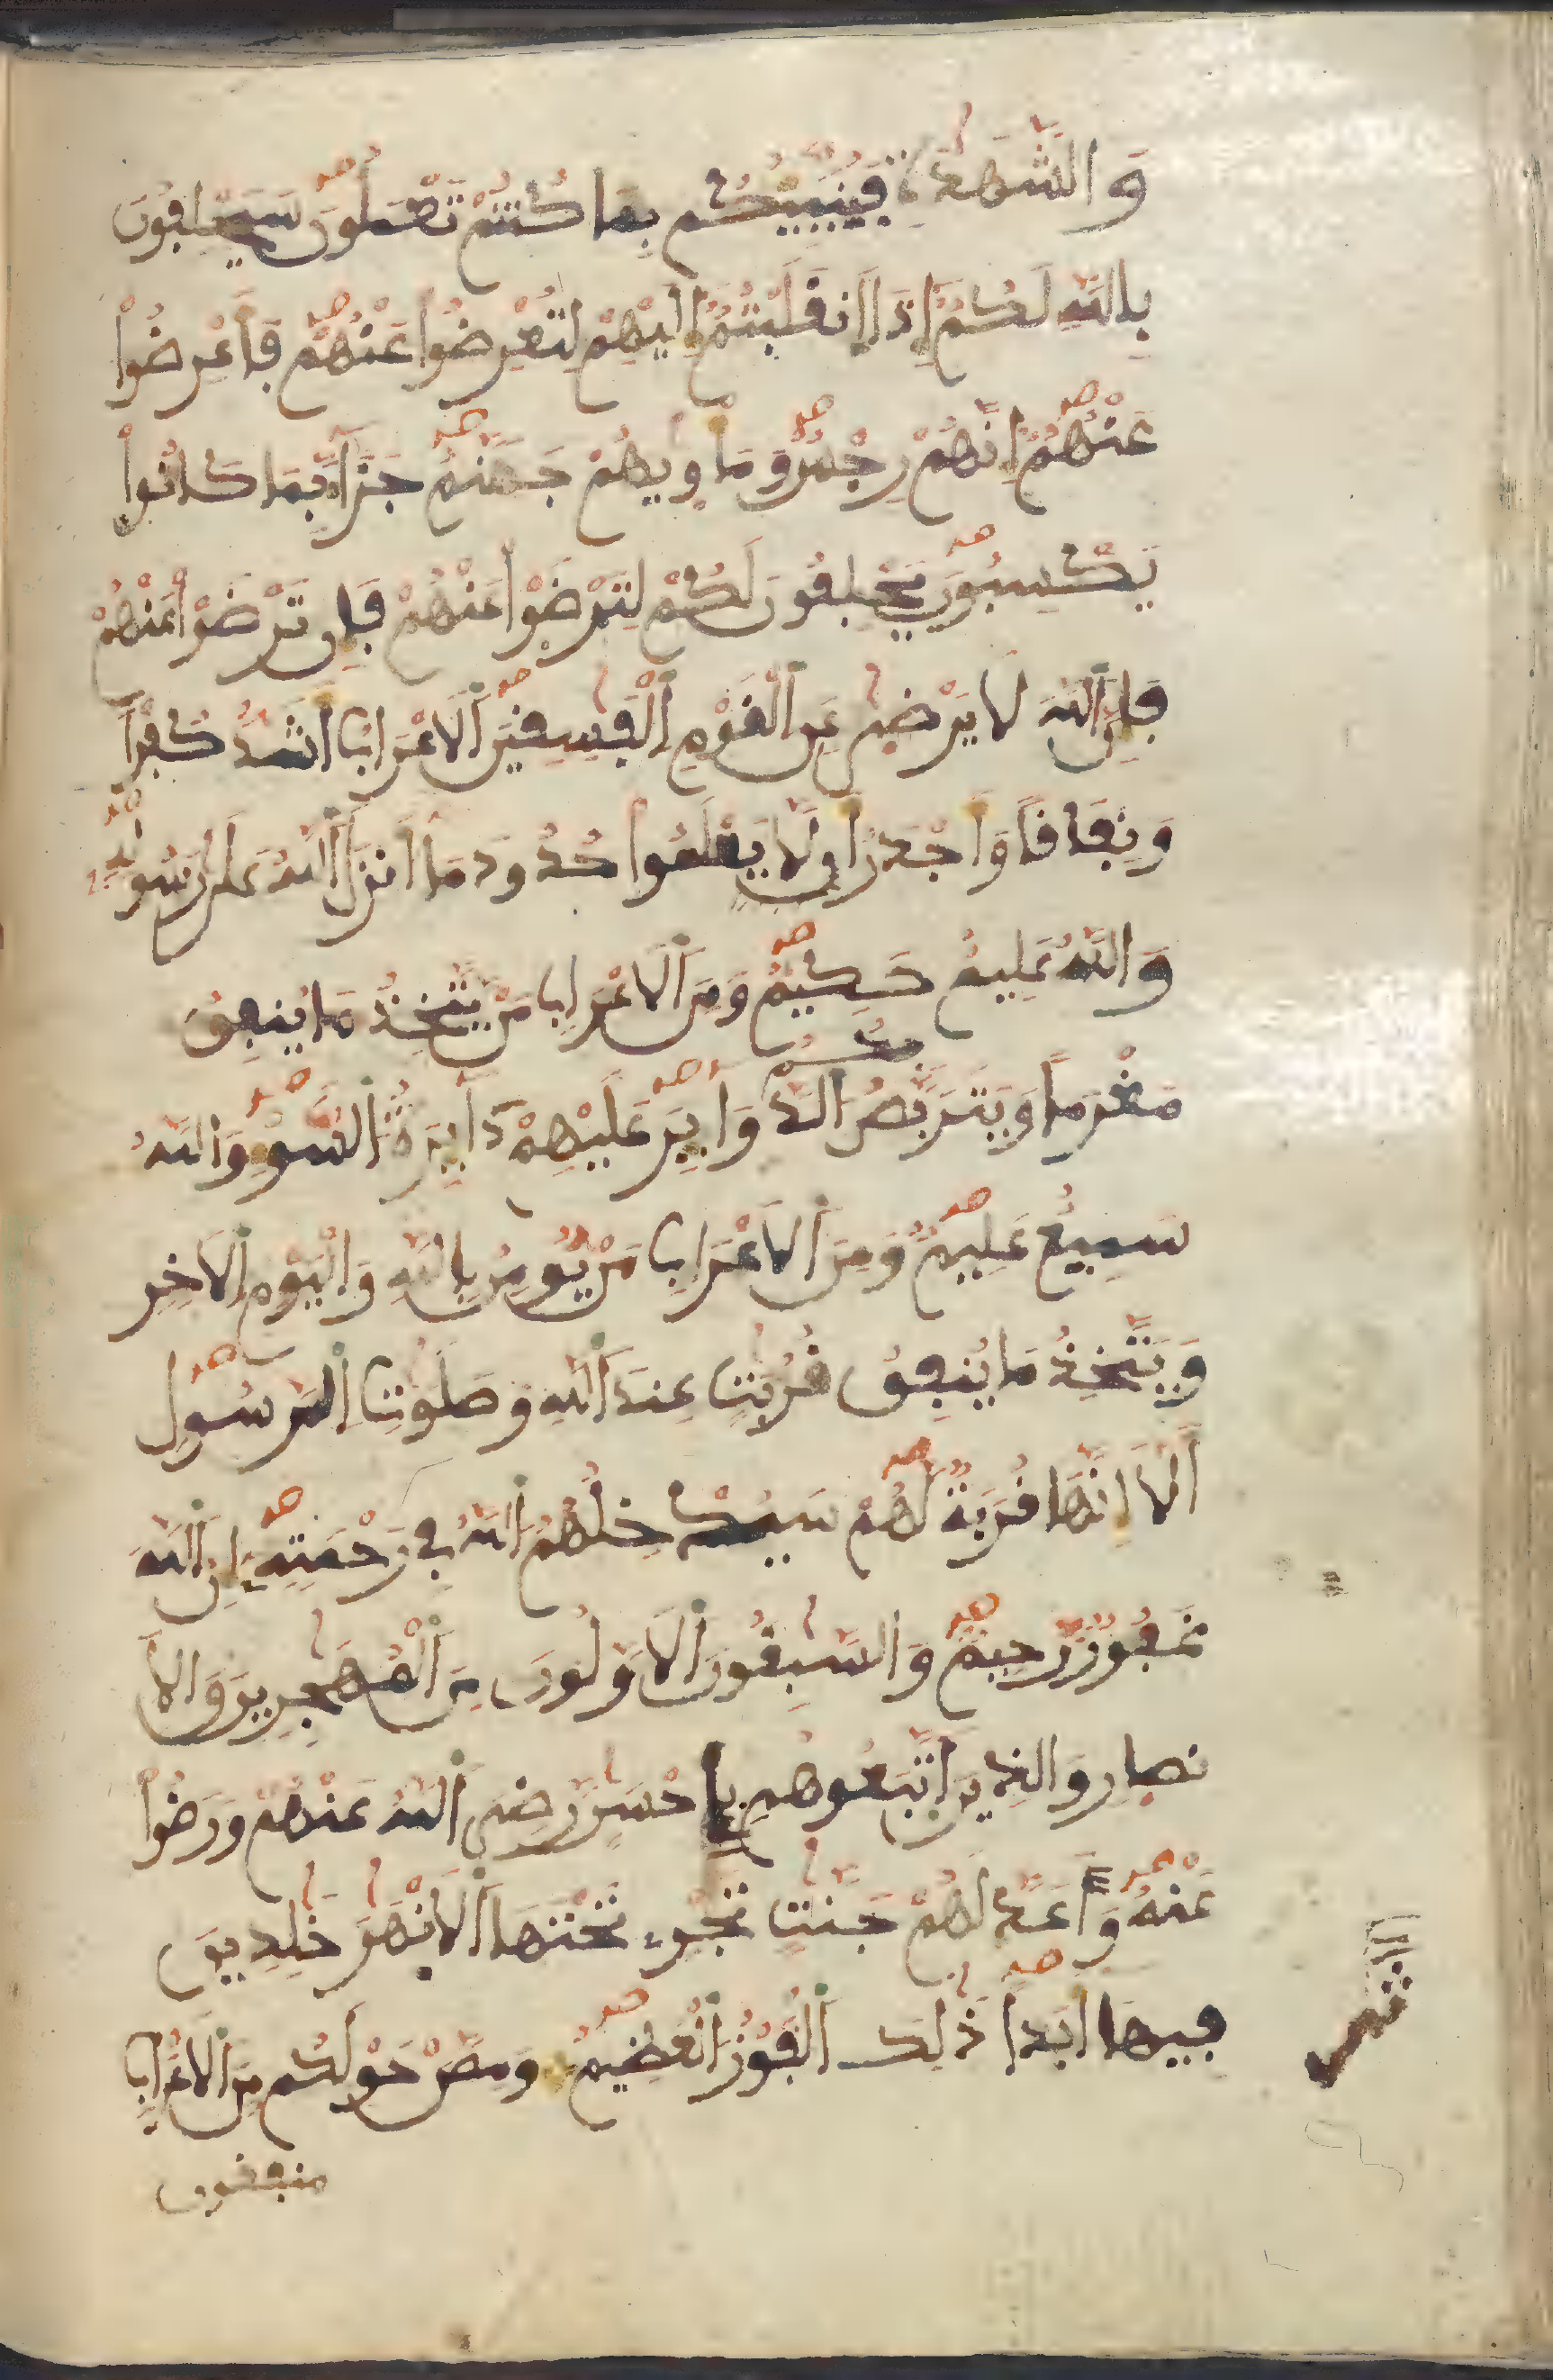 وَالشَّهَٰدَةِ فَيُنَبِّئُكُم بِمَا كُنتُمْ تَعْمَلُونَ سَيَحْلِفُونَ
بِاللَّهِ لَكُمُ إِذَا اَنقَلَبْتُمُ إِلَيْهِمْ لِتُعْرِضُواْ عَنْهُمْ فَأَعْرِضُواْ
عَنْهُمُ إِنَّهُمْ رِجْسٌ وَمَأْوِيٰهُمْ جَهَنَّمُ جَزَآءً بِمَا كَانُواْ
يَكْسِبُونَ يَحْلِفُونَ لَكُمْ لِتَرْضَوْاْ عَنْهُمْ فَإِن تَرْضَوْاْ عَنْهُمْ
فَإِنَّ اَللَّهَ لَا يَرْضىٰ عَنِ اِلْقَوْمِ اِلْفَٰسِقِينَ اَلَاعْرَابُ أَشَدُّ كُفْراً
وَنِفَاقاً وَأَجْدَرُ أَلَّا يَعْلَمُواْ حُدُودَ مَا أَنزَلَ اَللَّهُ عَلَىٰ رَسُولِهِ
وَاللَّهُ عَلِيمٌ حَكِيمٌ وَمِنَ اَلَاعْرَابِ مَنْ يَّتَّخِذُ مَا يُنفِقُ
مَغْرَماً وَيَتَرَبَّصُ بِكُمُ الدَّوَآئِرَ عَلَيْهِمْ دَآئِرَةُ السَّوْءِ وَاللَّهُ
سَمِيعٌ عَلِيمٌ وَمِنَ اَلَاعْرَابِ مَنْ يُّومِنُ بِاللَّهِ وَالْيَوْمِ اِلَاخِرِ
وَيَتَّخِذُ مَا يُنفِقُ قُرُبَٰتٍ عِندَ اَللَّهِ وَصَلَوَٰتِ اِلرَّسُولِ
أَلَا إِنَّهَا قُرُبَةٌ لَّهُمْ سَيُدْخِلُهُمُ اُللَّهُ فِي رَحْمَتِهِ إِنَّ اَللَّهَ
غَفُورٌ رَّحِيمٌ وَالسَّٰبِقُونَ اَلَاوَّلُونَ مِنَ اَلْمُهَٰجِرِينَ وَالَا
نصارِ وَالذِينَ اَتَّبَعُوهُم بِإِحْسَٰنٍ رَّضِيَ اَللَّهُ عَنْهُمْ وَرَضُواْ
عَنْهُ وَأَعَدَّ لَهُمْ جَنَّٰتٍ تَجْرِے تَحْتَهَا اَلَانْهَٰرُ خَٰلِدِينَ
فِيهَا أَبَداً ذَٰلِكَ اَلْفَوْزُ اُلْعَظِيمُ وَمِمَّنْ حَوْلَكُم مِّنَ اَلَاعْرَابِ
منفقون